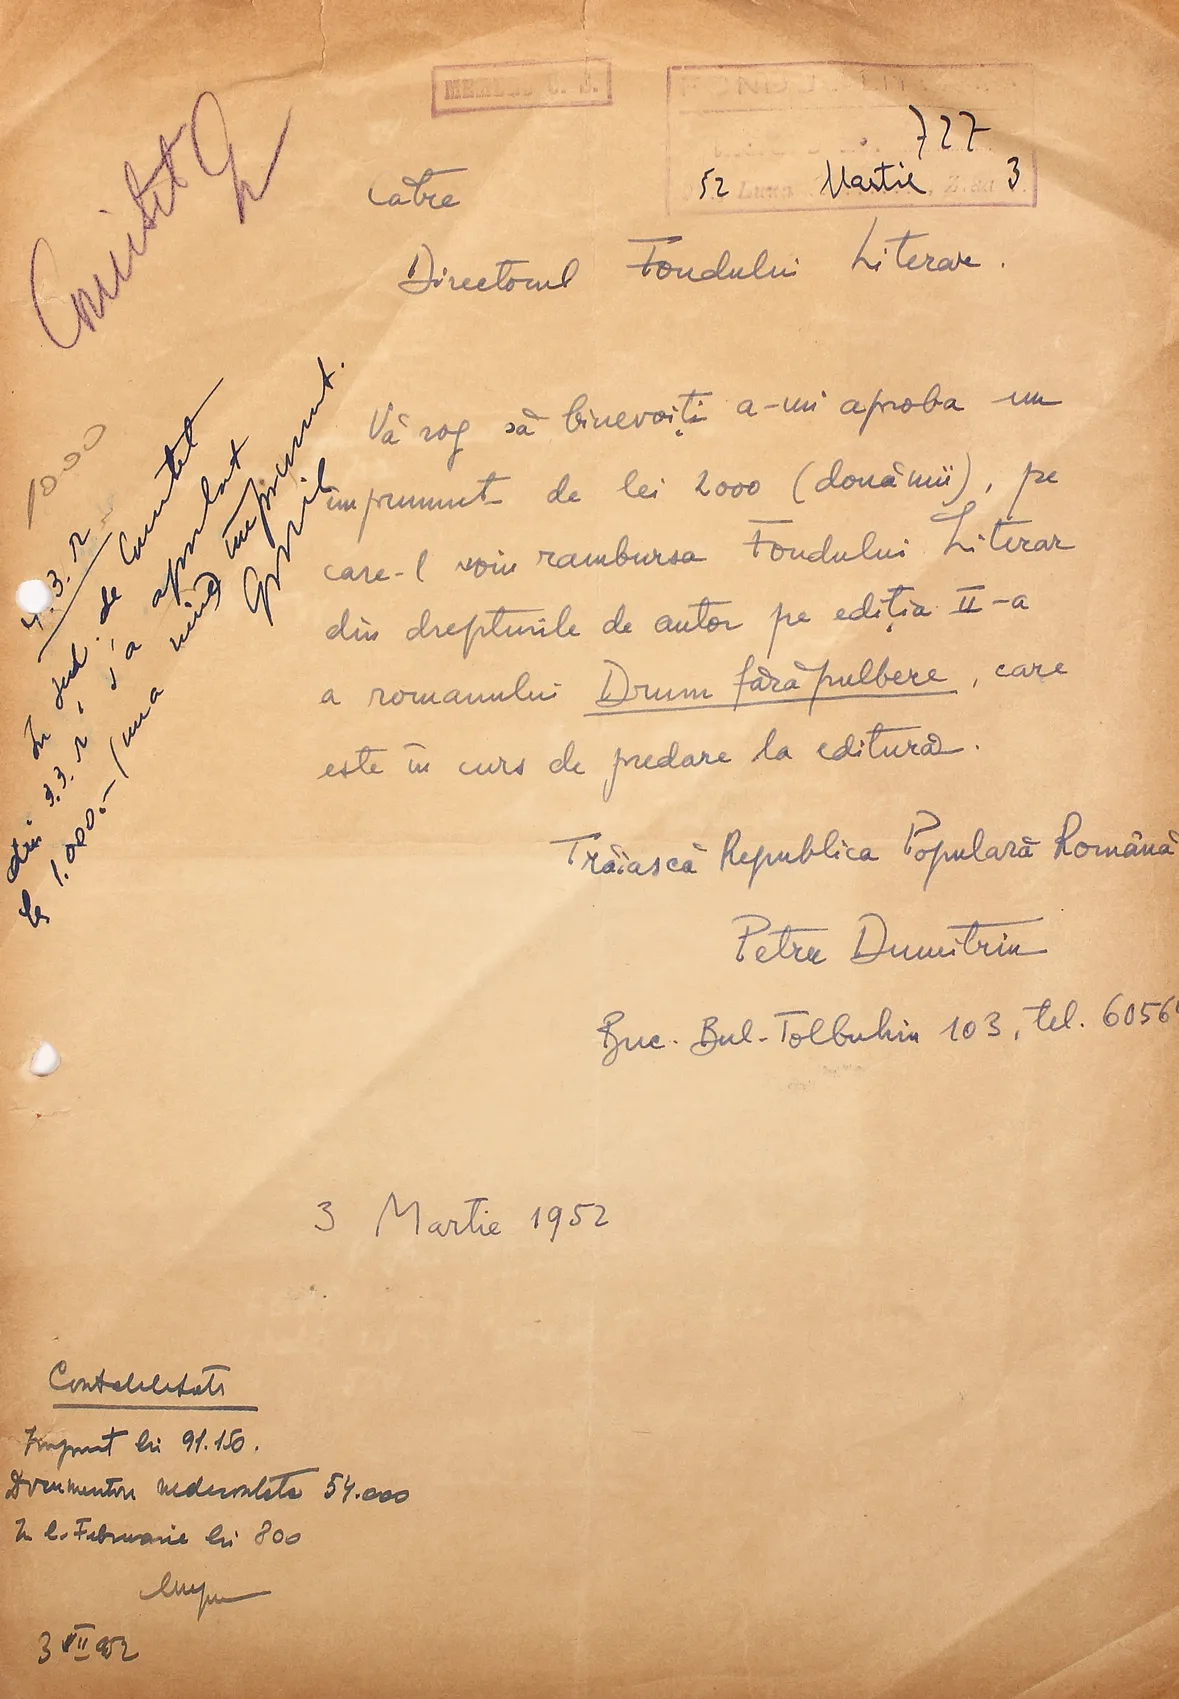 MEMBRU U. S.
FONDUL LITERAR
727
52 Luna Martie Ziua 3
Comitet
Catre
Directorul Fondului Literar.
Vă rog să binevoiți a-mi aproba un
imprumut de lei 2000 (douămii), pe
care-l voiu rambursa Fondului Literar
din drepturile de autor pe ediția II-a
a romanului Drum fără pulbere, care
este în curs de predare la editură.
Trăiască Republica Populară Română
Petru Dumitriu
Buc. Bul. Tolbuhin 103, tel. 6056
3 Martie 1952
1000
4.3.52
În șed. de Comitet
din 3.3. s'a aprobat
lei 1.000.- (una mie) împrumut.
Contabilitate
Imprut lei 91.150.
Documentare nedecontata 54.000
In l. Februarie lei 800
3 III 952